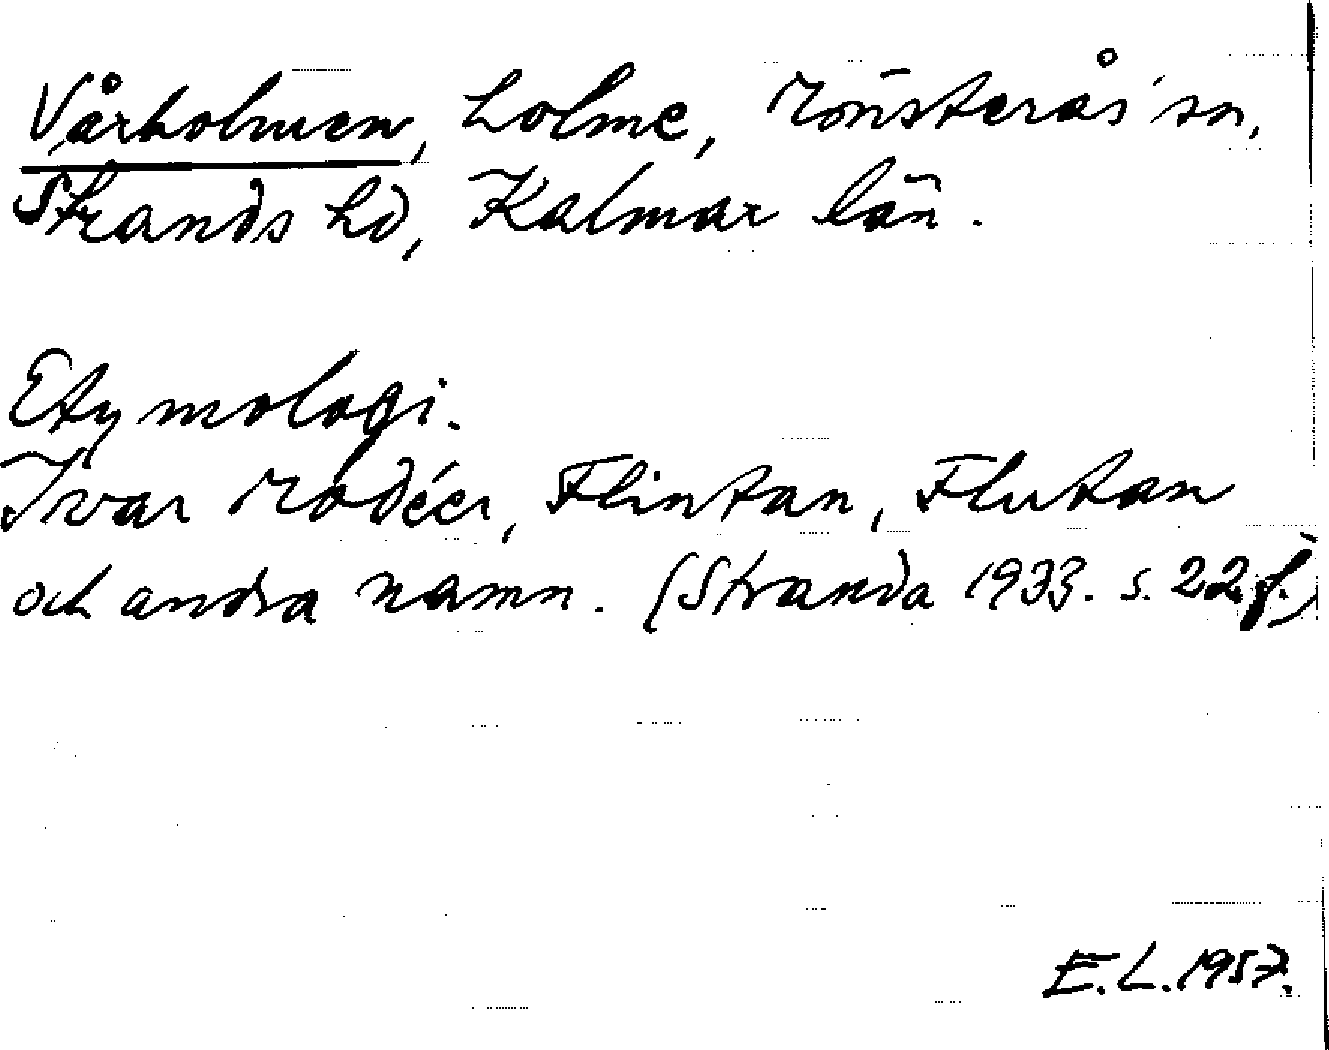 Vårholmen, holme, Mönsterås sn,
Stranda hd, Kalmar län.
Etymologi.
Ivar Modéer, Flintan, Flutan
och andra namn. (Stranda 1933. s. 22 f.)
E. L. 1957.